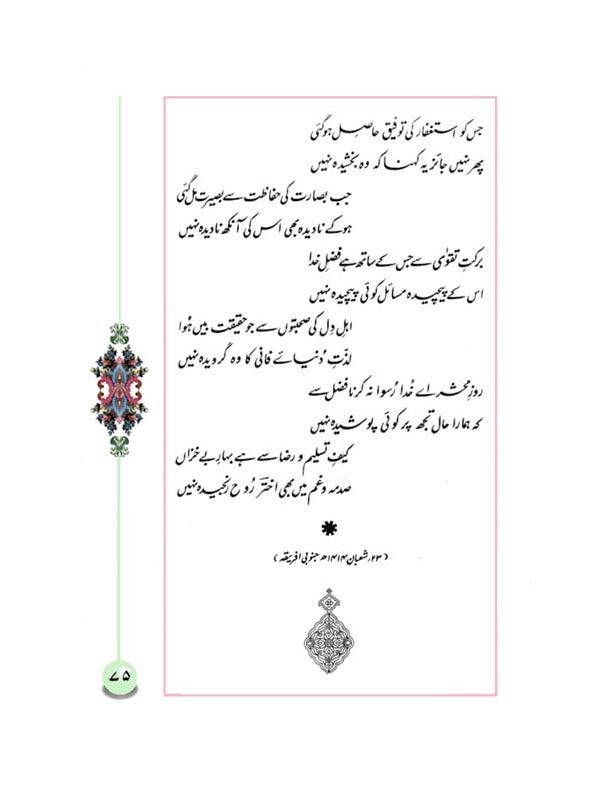 جس کو استغفار کی توفیق حاصل ہوگئی
پھر نہیں جائز یہ کہنا کہ وہ بخشیدہ نہیں
جب بصارت کی حفاظت سے بصیرت مل گئی
ہو کے نادیدہ بھی اس کی آنکھ نادیدہ نہیں
برکتِ تقوٰی سے جس کے ساتھ ہے فضلِ خدا
اس کے پیچیدہ مسائل کوئی پیچیدہ نہیں
اہلِ دِل کی صحبتوں سے جو حقیقت بیں ہُوا
لذّتِ دُنیائے فانی کا وہ گرویدہ نہیں
روزِ محشر اے خُدا رُسوا نہ کرنا فضل سے
کہ ہمارا حال تجھ پر کوئی پوشیدہ نہیں
کیفِ تسلیم و رضا سے ہے بہارِ بے خزاں
صدمہ و غم میں بھی اخترؔ رُوح رنجیدہ نہیں
(۲۳؍شعبان ۱۴۱۴ھ جنوبی افریقہ)
۷۵